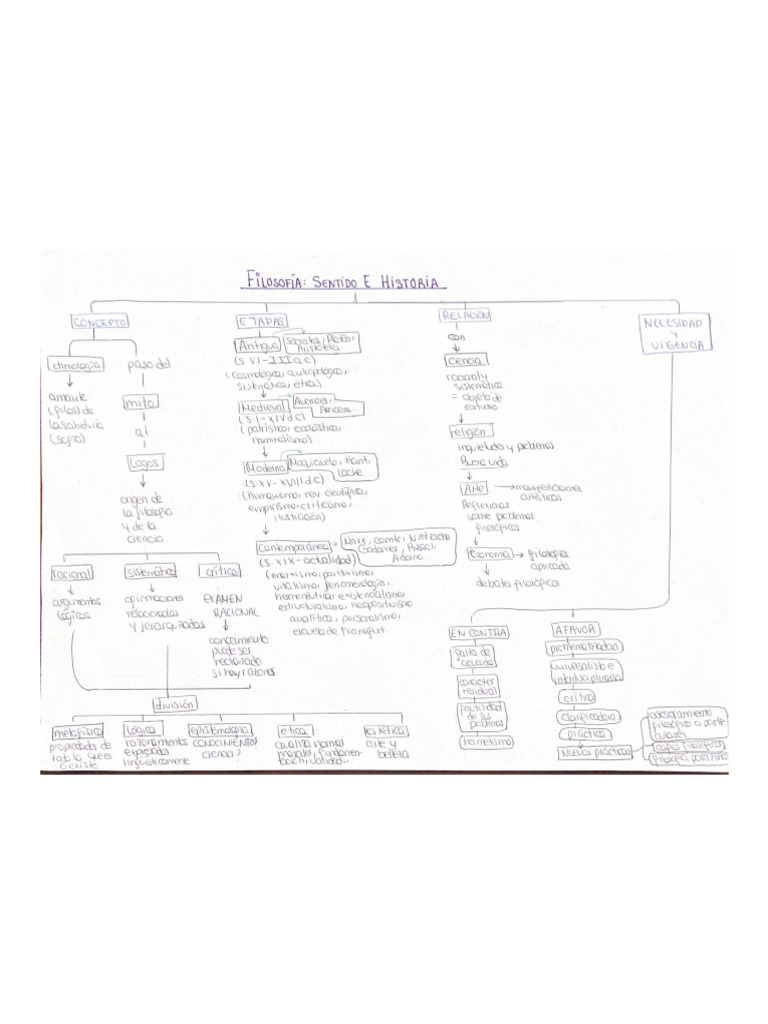 FILOSOFÍA: SENTIDO E HISTORIA
CONCEPTO
etimología
amante
(filos) de
la sabiduría
(sofia)
paso del
mito
al
Logos
origen de
la filosofía
y de la
ciencia
racional
argumentos
lógicos
sistemática
afirmaciones
relacionadas
y jerarquizadas
crítica
EXAMEN
RACIONAL
conocimiento
puede ser
rechazado
si hay razones
división
metafísica
propiedades de
todo lo que es
o existe
Lógica
razonamientos
expresados
lingüísticamente
epistemología
CONOCIMIENTO
ciencia
ética
normas
morales
validez...
estética
arte y
belleza
ETAPAS
Antigua
Sócrates, Platón,
Aristóteles
(S. VI-III a.C)
(cosmológica, antropológica,
sistemática, ética)
Medieval
Averroes,
Avicena...
(S. I-XIV d.C)
(patrística, escolástica,
nominalismo)
Moderna
Maquiavelo, Kant,
Locke
(S. XV-XVIII d.C)
(humanismo, rev. científica,
empirismo, criticismo,
ilustración)
Contemporánea
Marx, Comte, Nietzsche
Gadamer, Russel,
Adorno...
(S. XIX-actualidad)
(marxismo, positivismo,
vitalismo, fenomenología,
hermenéutica, existencialismo,
estructuralismo, neopositivismo
analítica, personalismo,
escuela de Frankfurt.
RELACIÓN
con
ciencia
racional y
sistemática
= objeto de
estudio
religión
inquietudes y problemas
Buena vida
Arte
manifestaciones
artísticas
Reflexionar
sobre problemas
filosóficos
economía
filosofía
aplicada
debates filosóficos
NECESIDAD
Y
VIGENCIA
EN CONTRA
falta de
acuerdo
carácter
residual
de sus
problemas
A FAVOR
problematizadora
universalista e
interdisciplinaria
crítica
clarificadora
práctica
Nuevas prácticas
asesoramiento
filosófico
cafés filosóficos
filosofía para niños